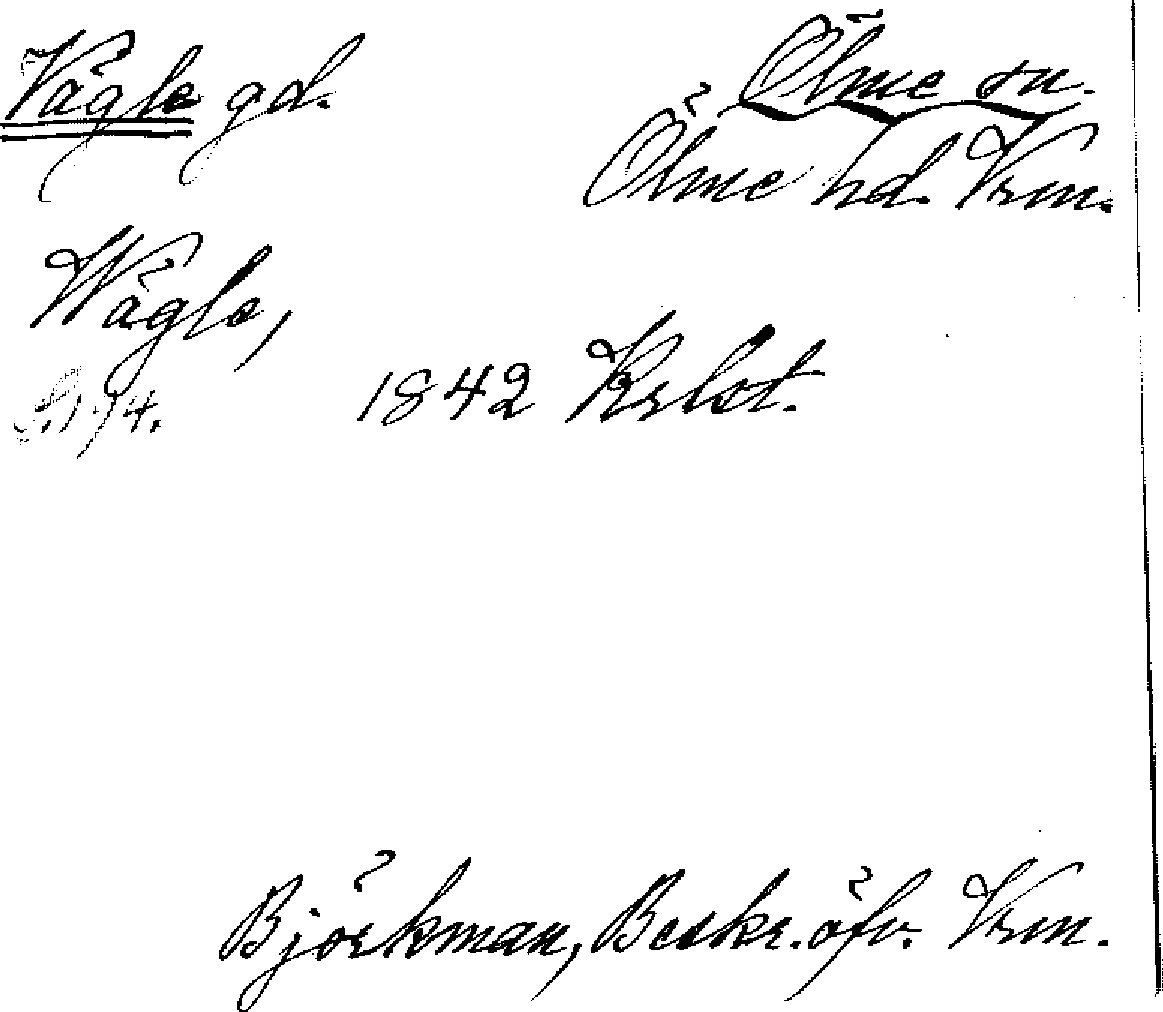 Vågle gd.
Ölme sn.
Ölme hd. Vrm.
Wågle,
S. 174.
1842 Krlst.
Björkman, Beskr. öfv. Vrm.